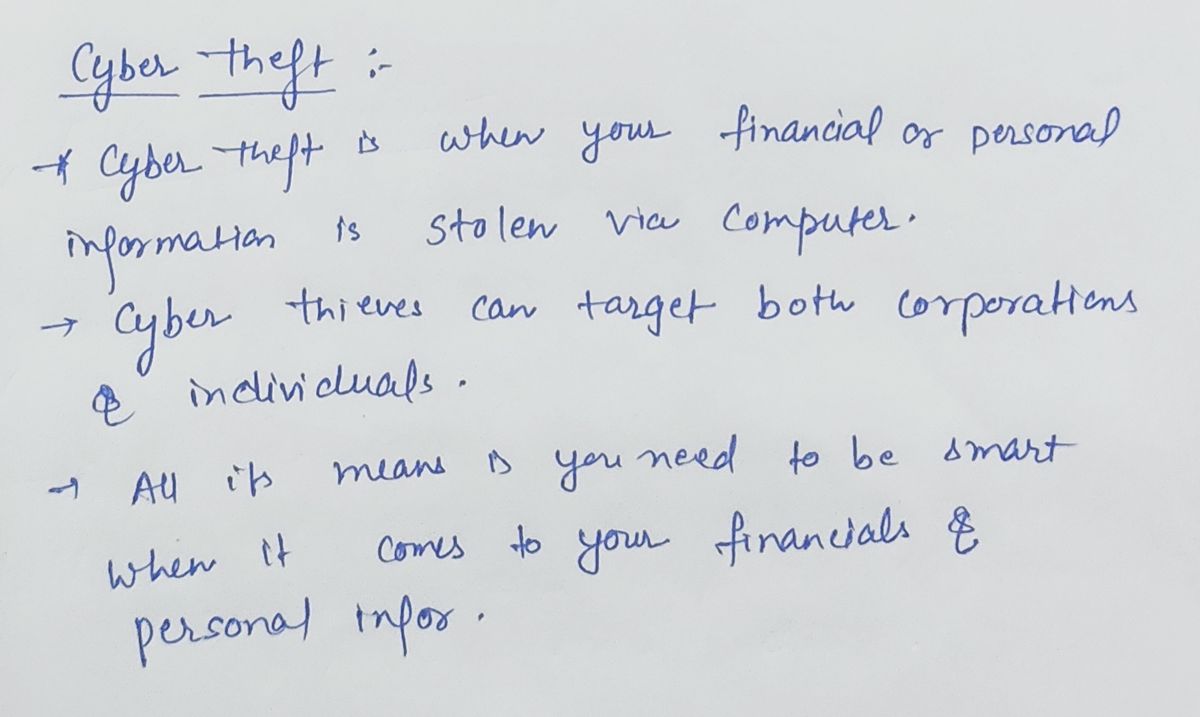 Cyber theft :-
* Cyber theft is when your financial or personal
information is stolen via computer.
→ Cyber thieves can target both corporations
& individuals.
→ All its means is you need to be smart
when it comes to your financials &
personal infor.